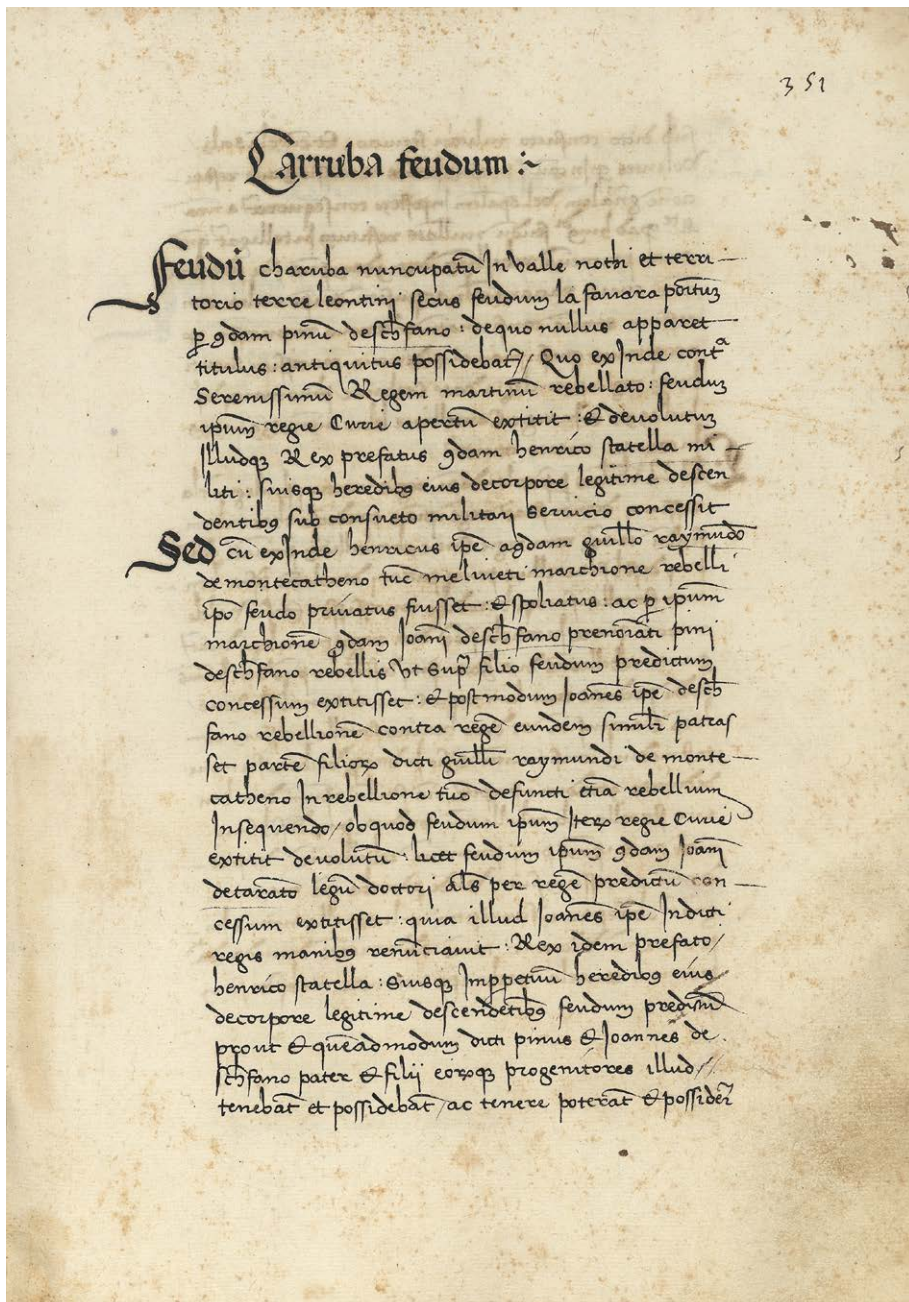 351
Carruba feudum :~
Feudū charuba nuncupatū In valle nothi et terri–
torio terre leontinj secus feudum la favara
ꝑ ꝯdam pinū descħfano : de quo nullus apparet
titulus : antiquitus possidebatꝛ // Quo ex Inde contᵃ
Serenissimū Regem martinū rebellato : feuduꝫ
ipm̄ regie Curie apertū extitit : & devolutuꝫ
Illudqꝫ Rex prefatus ꝯdam henrico statella mi–
liti : suisqꝫ heredibꝫ eius de corpore legitime descen
dentibꝫ sub consueto militarj servicio concessit
Sed cū ex Inde henricus ipē a ꝯdam guill̄o raymūdo
de montecatheno tūc meliveti marchione rebelli
ipō feudo privatus fuisset : & spoliatus : ac ꝑ ipm̄
marchionē ꝯdam Joanī descħfano prenoīati pini
descħfano rebellis Vt supᵃ filio feudum predictum
concessum extitisset : & postmodum Joanēs ipē descħ
fano rebellionē contra regē eundem simili patras
set partē filioꝝ dicti guill̄i raymundi de monte–
catheno In rebellione tūc defuncti etiā rebellium
Insequendo / ob quod feudum ipm̄ Iteꝝ regie Curie
extitit devolutū : licet feudum ipm̄ ꝯdam Joanī
de tarāto legū doctori al̄s per regē predictū con–
cessum extitisset : quia illud Joanēs ipē In dicti
regis manibꝫ renūciavit : Rex idem prefato /
henrico statella : suisqꝫ Imꝑpetuū heredibꝫ eius
de corpore legitime descendētibꝫ feudum predictū
prout & quēadmodum dicti pinus & Joannēs de
scħfano pater & filij eoꝝqꝫ progenitores illud //
tenebāt et possidebāt / ac tenere poterāt & possiderī